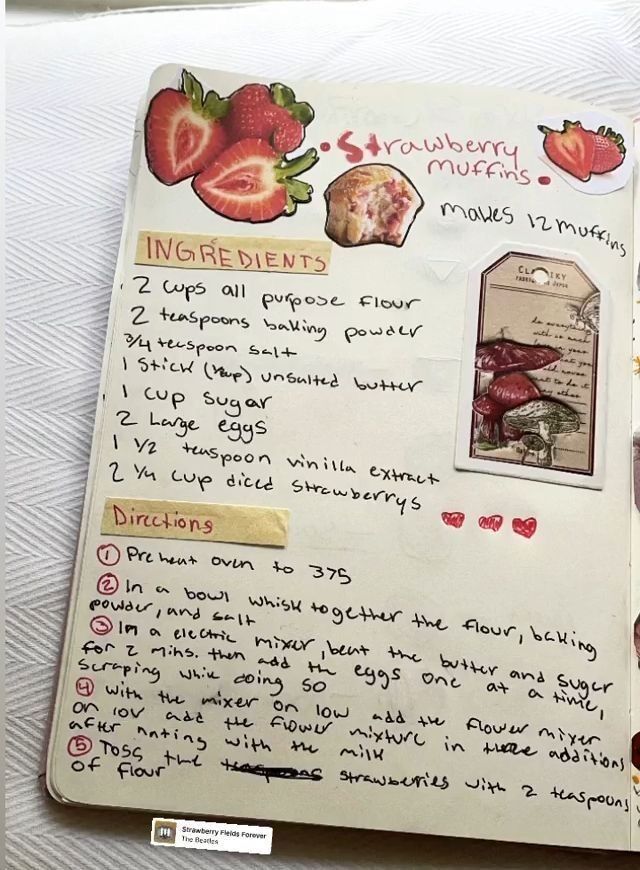 • Strawberry
muffins •
makes 12 muffins
INGREDIENTS
2 cups all purpose flour
2 teaspoons baking powder
3/4 teaspoon salt
1 stick (½ cup) unsalted butter
1 cup sugar
2 Large eggs
1 1/2 teaspoon vinilla extract
2 1/4 cup diced strawberrys
Directions
① Preheat oven to 375
② In a bowl whisk together the flour, baking
powder, and salt
③ In a electric mixer, beat the butter and suger
for 2 mins. then add the eggs one at a time,
scraping while doing so
④ with the mixer on low add the flower mixer
on low add the flower mixture in three additions
after with the milk
⑤ Toss the strawberries with 2 teaspouns
of flour
Strawberry Fields Forever
The Beatles